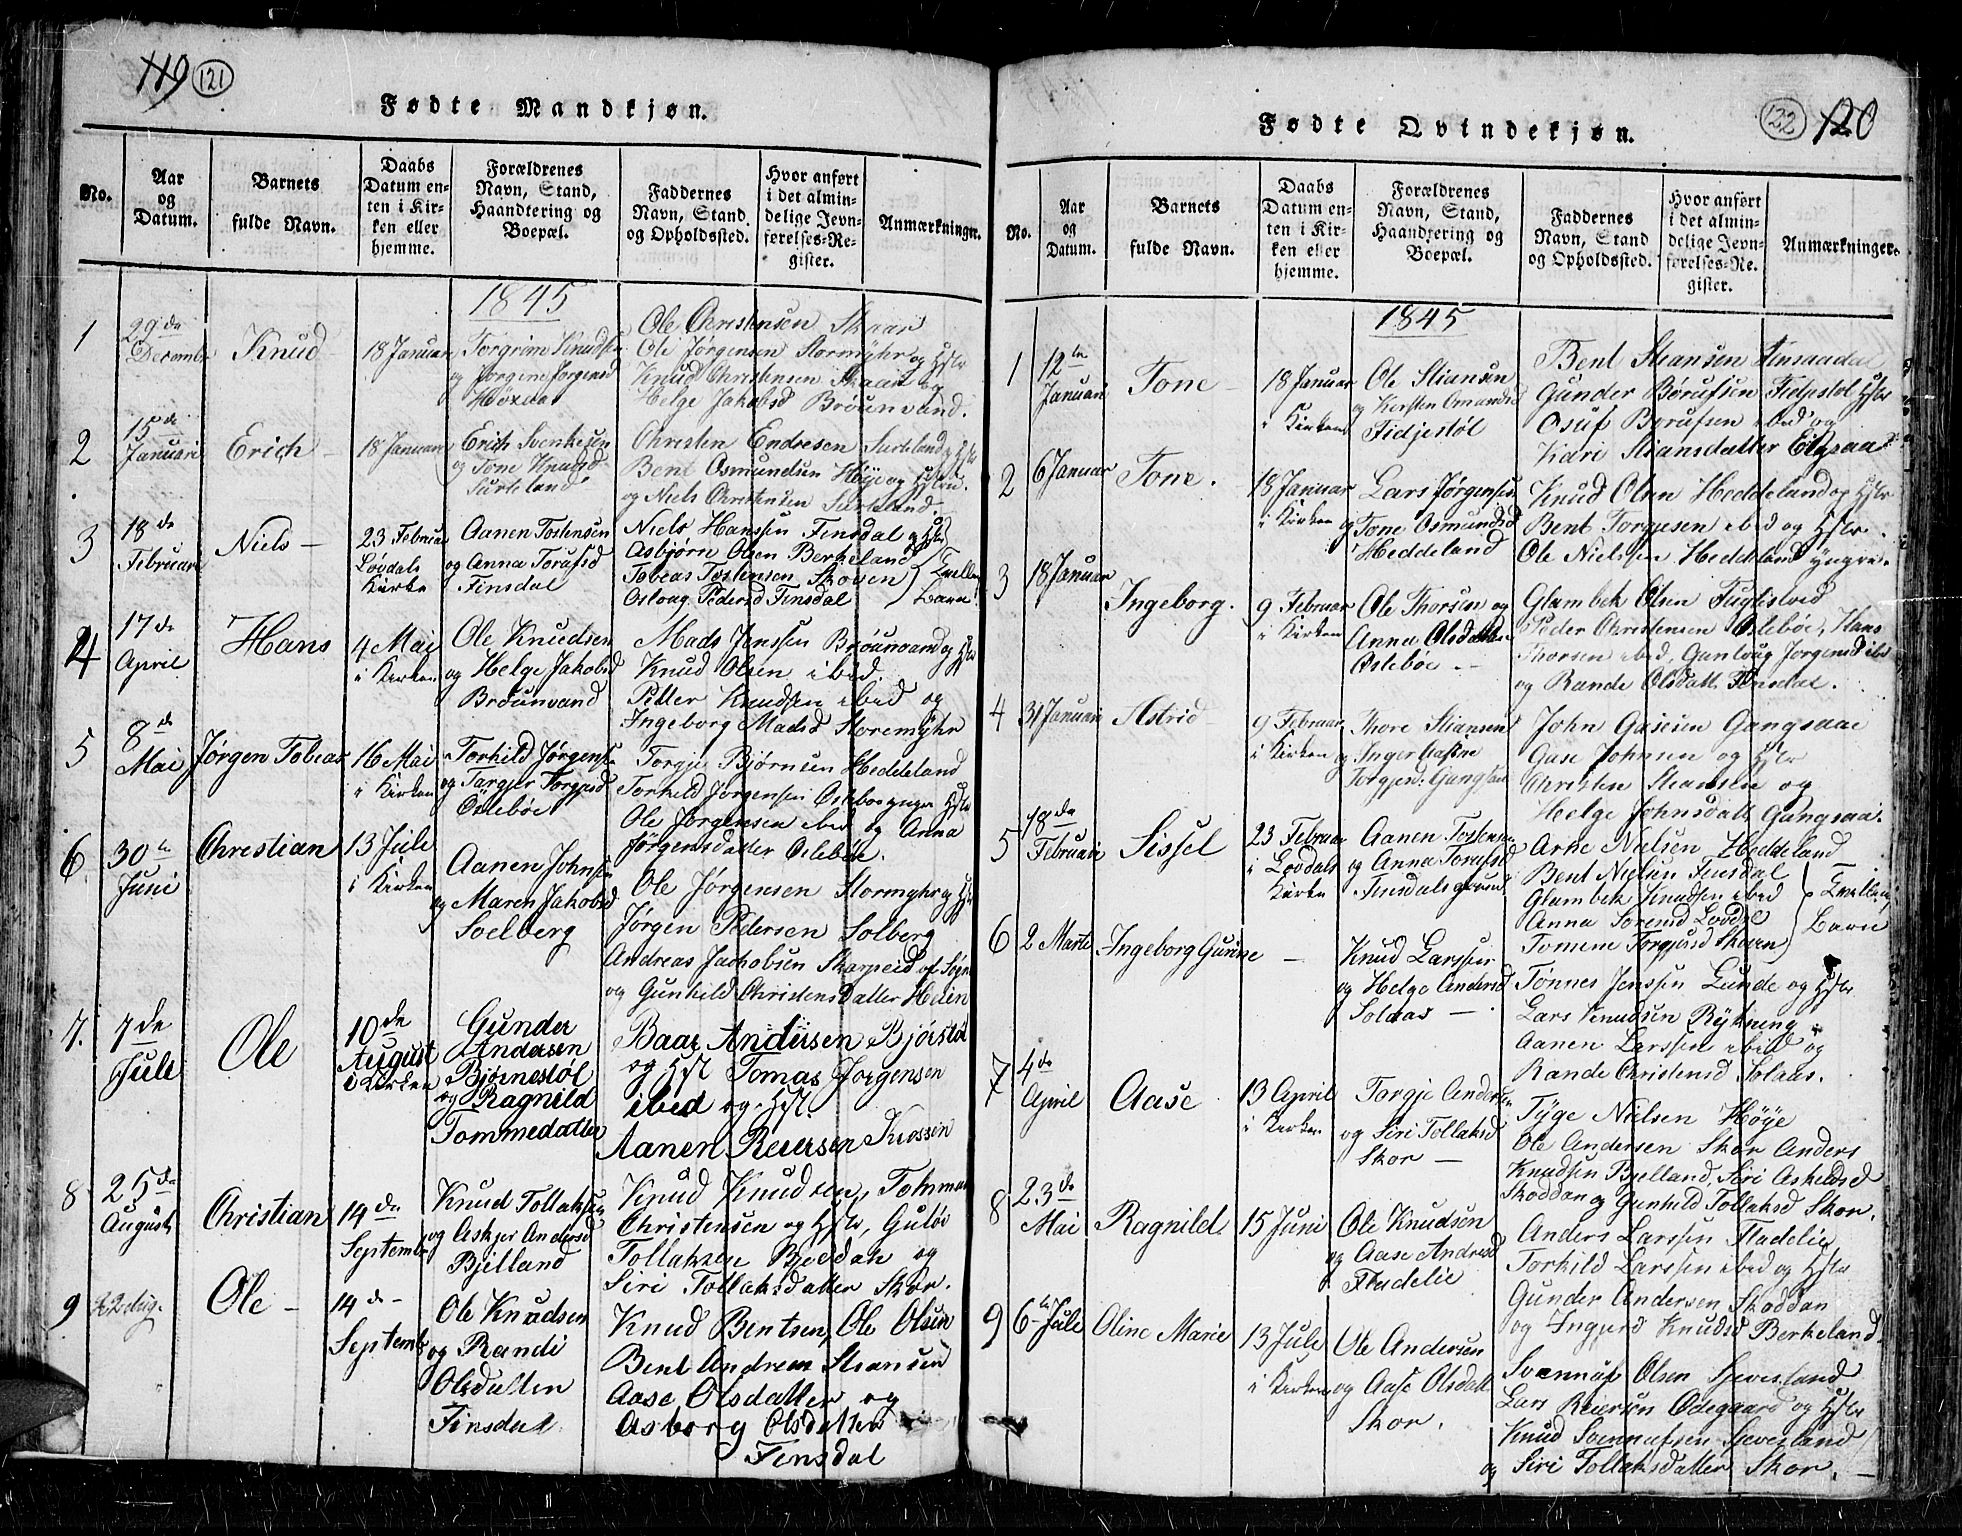 119 121
Fødte Mandkjøn.
No.
Aar
og
Datum.
Barnets
fulde Navn.
Daabs
Datum en-
ten i Kir-
ken eller
hjemme.
Forældrenes
Navn, Stand,
Haandtering og
Boepæl.
Faddernes
Navn, Stand
og Opholdssted.
Hvor anført
i det almin-
delige Jevn-
førelses-Re-
gister.
Anmærkninge.
1845
1
29de
Decembr
Knud
18 Januar
Torgrim Knudsen
og Jørgine Jørgensd
Ole Christensen Skaar
Ole Jørgensen Stormyhr og Hstr
Knud Christensen Skaar og
Helge Jakobsd Brøunvand.
2
15de
Januari
Erich
18 Januar
Erich Svenkesen
og Tone Knudsd
Surteland
Christen Endresen Surteland og Hstr
Bent Osmundsen Høye og Hstru.
og Niels Christensen Surteland.
3
18de
Februari
Niels
23 Februar
Løvdals
Kirke
Aanen Tostensen
og Anna Torufsd
Finsdal
Niels Hansen Finsdal og Hstr
Asbjørn Olsen Berkeland
Tobias Tostensen Skoven
Oslaug Pedersd Finsdal
Tvilling
Barn
4
17de
April
Hans
4 Mai
i Kirken
Ole Knudsen
og Helge Jakobsd
Brøunvand
Mads Jenssen Brøunvand og Hstr
Knud Olsen ibid.
Petter Knudsen ibid og
Ingeborg Madsd Storemyhr
5
8de
Mai
Jørgen Tobias
16 Mai
i Kirken
Torkild Jørgensen
og Targjer Torgjusd
Oslebøe
Torgje Bjørnsen Heddeland
Torkild Jørgensen Oslebøe yngre Hstr
Ole Jørgensen ibid og Anna
Jørgensdatter Oslebøe.
6
30te
Juni
Christian
13 Juli
i Kirken
Aanen Johnsen
og Maren Jakobsd
Soelberg
Ole Jørgensen Stormyhr og Hstr
Jørgen Pedersen Solberg
Andreas Jachobsen Skarpeid of Sogn
og Gunhild Christensdatter Heien
7.
7de
Juli
Ole
10de
August
i Kirken
Gunder
Andersen
Bjørnestøl
og Ragnild
Tommedatter
Baar Andersen Bjørstøl
og Hst Tomas Jørgensen
ibid og Hst.
Aanen Reiersen Krossen
8
25de
August
Christian
14de
Septembr
Knud Tollaksen
og Askjer Andersd
Bjelland
Knud Knudsen, Tommas
Christensen og Hstr, Guløv
Tollaksen Bjeddah og
Siri Tollaksdatter Skor.
9
22 Aug.
Ole
14de
Septembr
Ole Knudsen
og Randi
Olsdatter
Finsdal
Knud Bentsen, Ole Olsen
Bent Andreas Stiansen
Aase Olsdatter og
Asborg Olsdatter
Finsdal
122 120
Fødte Qvindekjøn.
No.
Aar
og
Datum.
Barnets
fulde Navn.
Daabs
Datum en-
ten i Kir-
ken eller
hjemme.
Forældrenes
Navn, Stand,
Haandtering og
Boepæl.
Faddernes
Navn, Stand
og Opholdssted.
Hvor anført
i det almin-
delige Jevn-
førelses-Re-
gister.
Anmærkninger.
1845
1
12te
Januari
Tone
18 Januar
i Kirken
Ole Stiansen
og Kersten Omundsd
Fidjestøl
Bent Stiansen Finsaadal
Gunder Børufsen Fidjestøl Hstr
Osuf Børufsen ibid og
Kari Stiansdatter Eigsaa
2
6 Januar
Tone.
18 Januar
i Kirken
Lars Jørgensen
og Tone Osmundsd
Heddeland
Knud Olsen Heddeland og Hstr
Bent Torgjesen ibid og Hstr.
Ole Nielsen Heddeland yngre.
3
18 Januar
Ingeborg.
9 Februar
i Kirken
Ole Thorsen og
Anna Olsdatter
Oslebøe
Glambek Olsen Fuglestved
Peder Christensen Oslebøe, Hans
Thorsen ibid, Gunloug Jørgensd ibd
og Rande Olsdatt. Finsdal.
4
31 Januari
Astrid
9 Februar
i Kirken
Thore Stiansen
og Inger
Torgjersd: Gangsaa
John Gasesen Gangsaae
Gase Johnsen og Hstr
Christen Stiansen og
Helge Johnsdatt Gangsaa.
5
18de
Februari
Sissel
23 Februar
i Løvdals
Kirke
Aanen Tostensen
og Anna Torufsd
Finsdalsgrund
Arne Nielsen Heddeland
Bent Nielsen Finsdal
Glambek Knudsen ibid
Anna Sørensd Løvdal
Tomine Torgjusd Skoven
Tvilling
Barn
6
2 Marts
Ingeborg Gurine
Knud Larssen
og Helge Andersd
Solaas
Tønnes Jenssen Lunde og Hstr
Lars Knudsen Røykning
Aanen Larssen ibid og
Rande Christensd Solaas.
7
4de
April
Aase
13 April
i Kirken
Torgje Andersen
og Siri Tollaksd
Skor
Tyge Nielsen Høye
Ole Andersen Skor Anders
Knudsen Bjelland, Siri Askildsd
Skoddan og Gunhild Tollaksd Skor.
8
23de
Mai
Ragnild
15 Juni
Ole Knudsen
og Aase Andersd
Fladelie
Anders Larssen Fladelie
Torkild Larssen ibid og Hstr
Gunder Andersen Skoddan
og Ingjerd Knudsd Berkeland
9
6te Juli
Oline Marie
13 Juli
i Kirken
Ole Andersen
og Aase Olsdatt
Skor.
Svennuf Olsen Sjevesland
Lars Reiersen Ødegaard og Hstr
Knud Svennufsen Sjevesland
og Siri Tollaksdatter Skor.